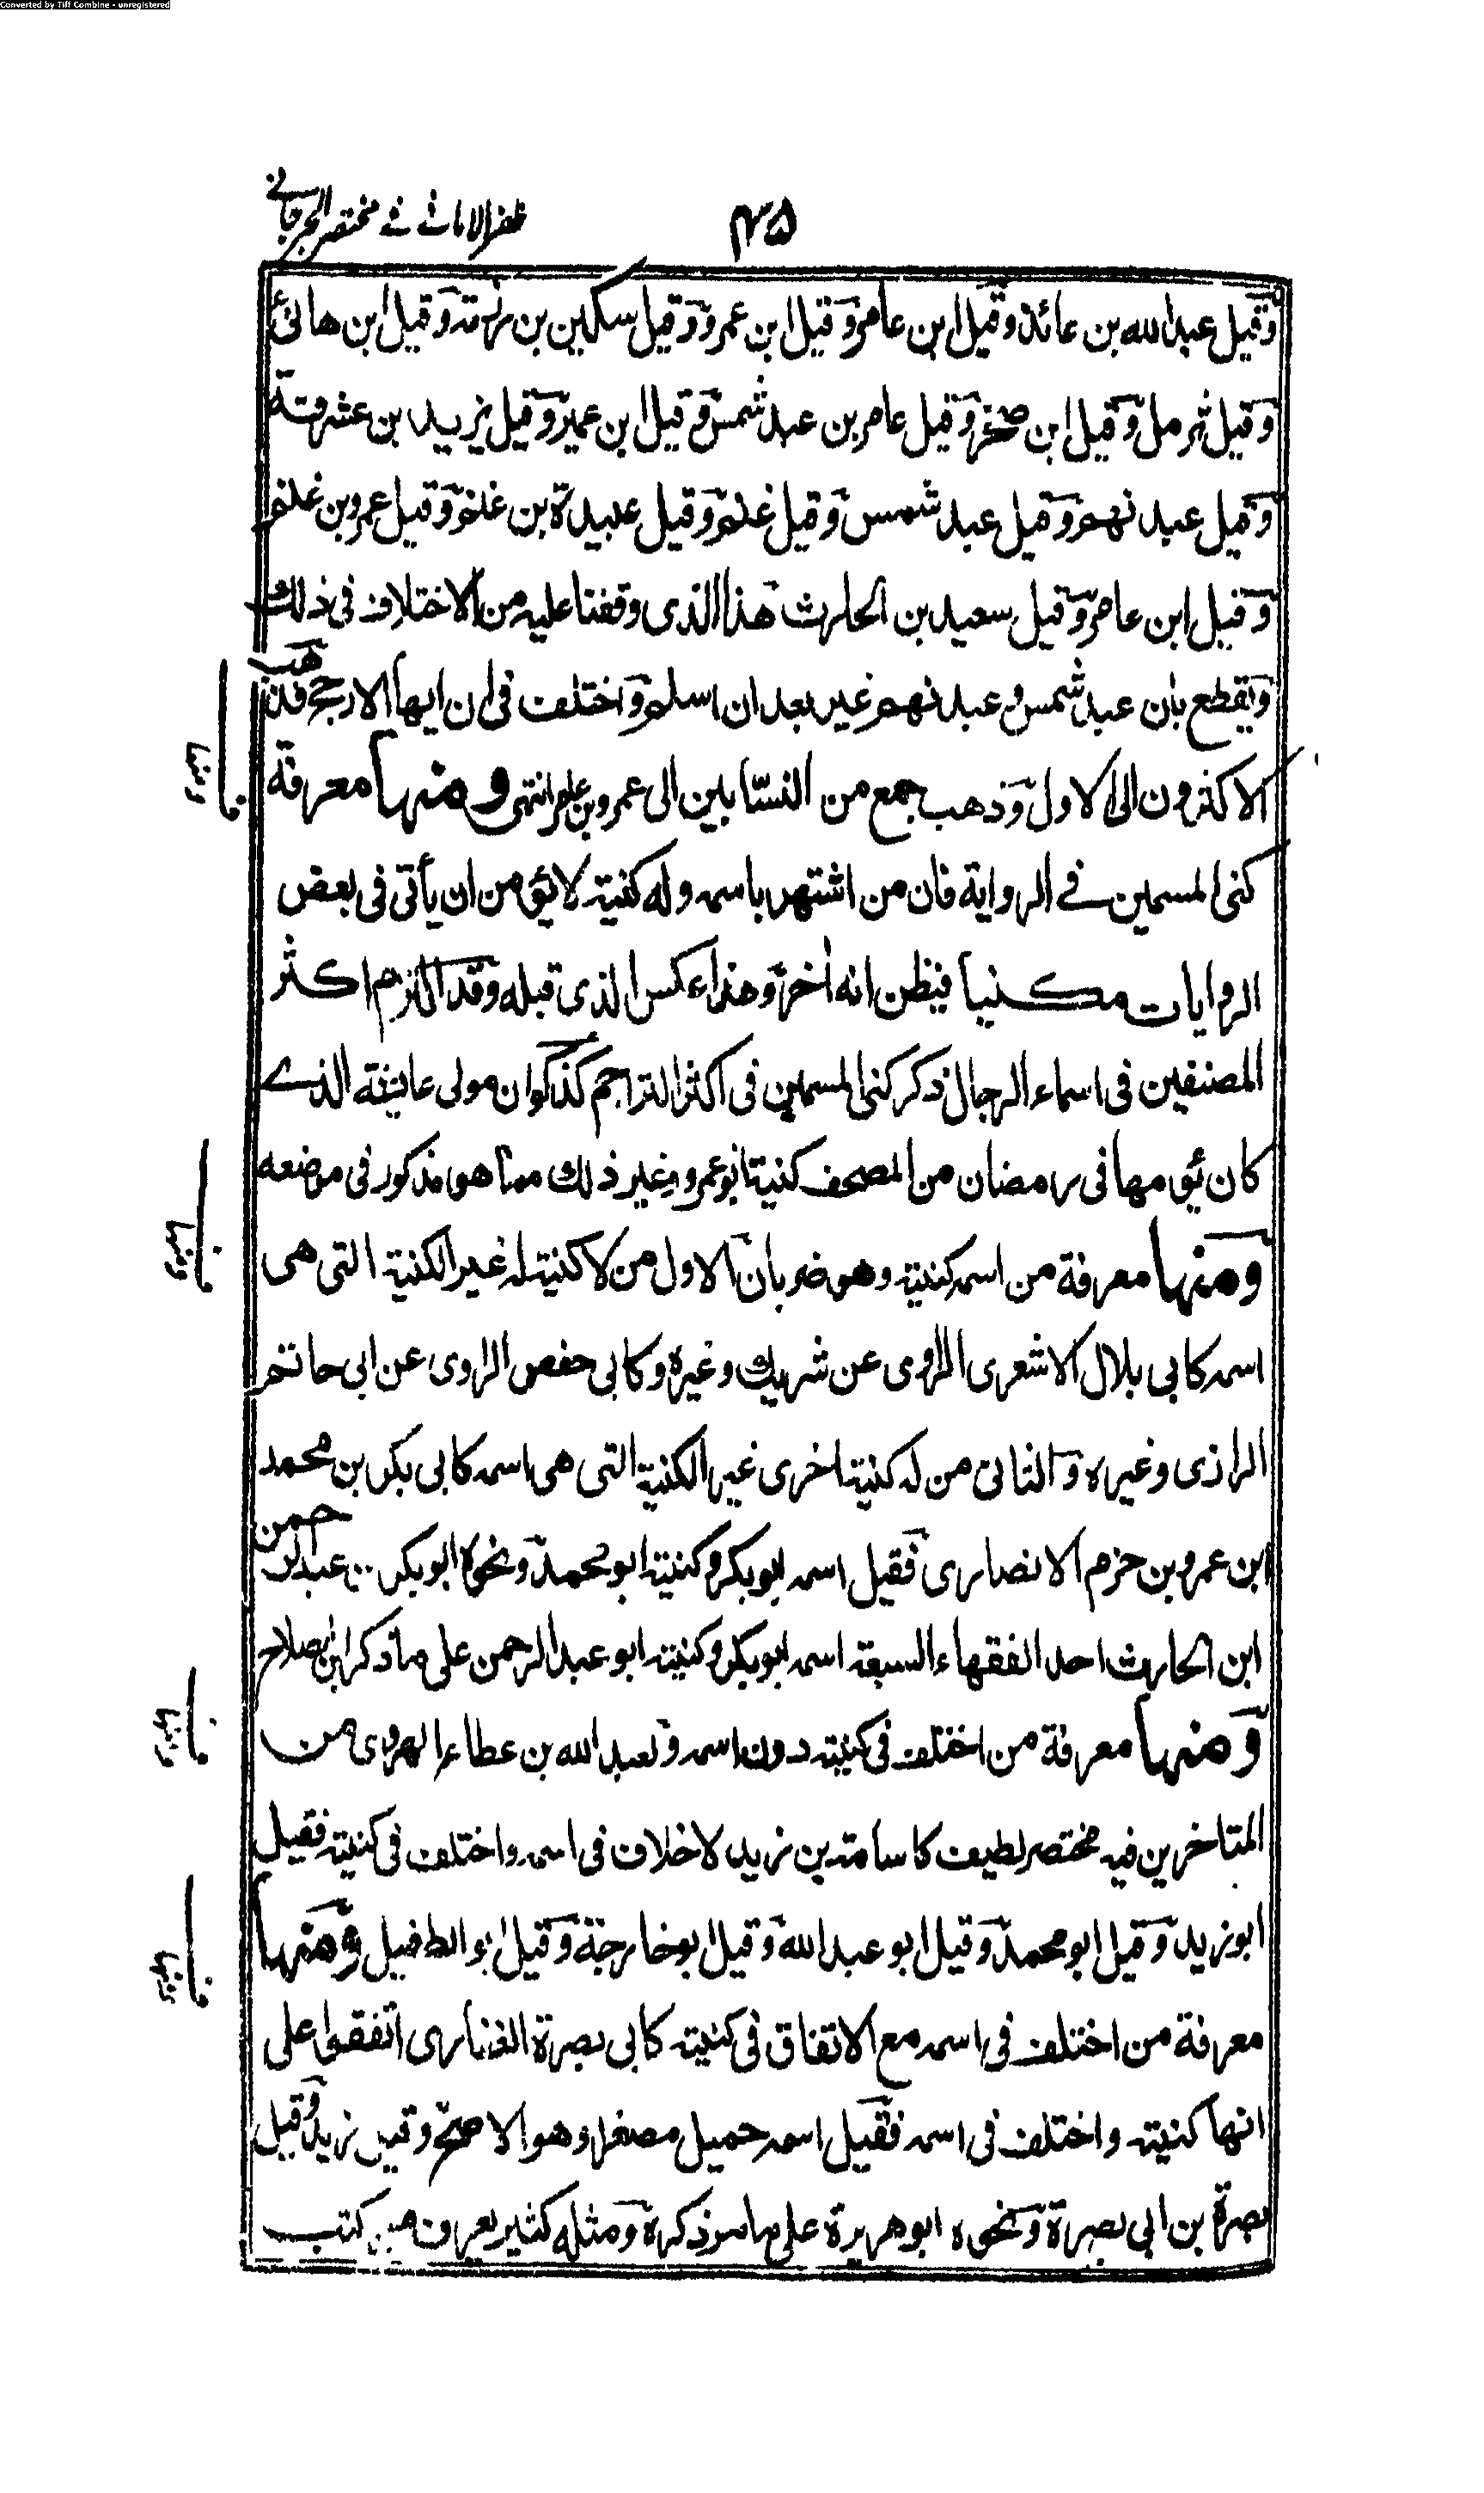 Converted by Tiff Combine - unregistered
ظفر الامانى فے مختصر الجرجانے
٤٥
وقيل عبد الله بن عائذ وقيل ابن عامر وقيل ابن عمرو وقيل سكين بن رزمة وقيل ابن هانئ
وقيل ثرمل وقيل ابن صخر وقيل عامر بن عبد شمس وقيل ابن عمير وقيل يزيد بن عشرقة
وقيل عبد نهم وقيل عبد شمس وقيل غنم وقيل عبيدة بن غنم وقيل عمرو بن غنم
وقيل ابن عامر وقيل سعيد بن الحارث هذا الذى وقفنا عليه من الاختلاف فى ذلك
ويقطع بان عبد شمس وعبد نهم غير بعد ان اسلم واختلف فى ان ايها الارجح فذهب
الاكثرون الى الاول وذهب جمع من النسّابين الى عمرو بن عامر انتهى ومنها معرفة
كنى المسمين فے الرواية فان من اشتهر باسمه وله كنية لا يؤمن ان يأتى فى بعض
الروايات مكنيا فيظن انه اخر وهذا عكس الذى قبله وقد التزم اكثر
المصنفين فى اسماء الرجال ذكر كنى المسمين فى اكثر التراجم كذكوان مولى عائشة الذے
كان يؤمها فى رمضان من المصحف كنيته ابو عمرو وغير ذلك مما هو مذكور فى موضعه
ومنها معرفة من اسمه كنيته وهو ضربان الاول من لا كنية له غير الكنية التى هى
اسمه كابى بلال الاشعرى الراوى عن شريك وغيره وكابى حفص الراوى عن ابى حاتم
الرازى وغيره والثانى من له كنية اخرى غير الكنية التى هى اسمه كابى بكر بن محمد
ابن عمرو بن حزم الانصارى فقيل اسمه ابو بكر وكنيته ابو محمد ونحوه ابو بكر بن عبد الرحمن
ابن الحارث احد الفقهاء السبعة اسمه ابو بكر وكنيته ابو عبد الرحمن على ما ذكر ابن صلاح
ومنها معرفة من اختلف فى كنيته دون اسمه ولعبد الله بن عطاء الهروى من
المتاخرين فيه مختصر لطيف كاسامة بن زيد لا خلاف فى اسمه واختلف فى كنيته فقيل
ابو زيد وقيل ابو محمد وقيل ابو عبد الله وقيل ابو خارجة وقيل ابو الطفيل ومنها
معرفة من اختلف فى اسمه مع الاتفاق فى كنيته كابى بصرة الغفارى اتفقوا على
انها كنيته واختلف فى اسمه فقيل اسمه حميل مصغرا وهو الاصح وقيل زيد وقيل
بصرة بن ابى بصرة ونحوه ابو هريرة على ما مر ذكره ومثله كثير يعرف من كتب